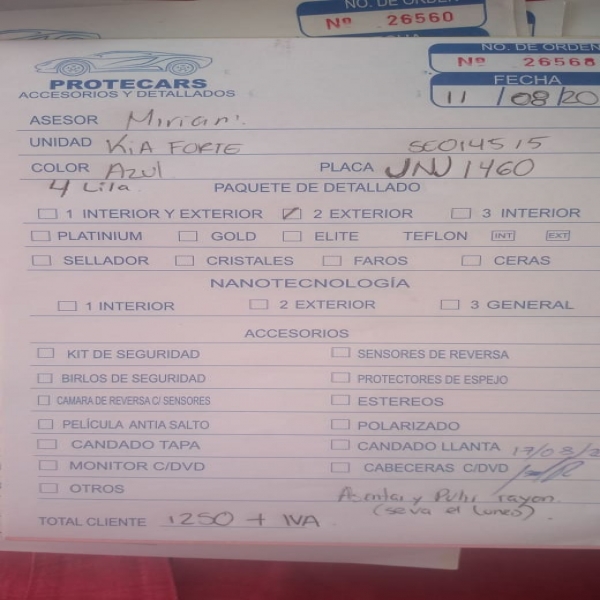 NO. DE ORDEN
Nº 26560
NO. DE ORDEN
Nº 26568
FECHA
11 / 08 / 20
PROTECARS
ACCESORIOS Y DETALLADOS
ASESOR Miriam.
UNIDAD KIA FORTE SE014515
COLOR Azul PLACA JNU1460
4 Lila PAQUETE DE DETALLADO
1 INTERIOR Y EXTERIOR 2 EXTERIOR 3 INTERIOR
PLATINIUM GOLD ELITE TEFLON INT EXT
SELLADOR CRISTALES FAROS CERAS
NANOTECNOLOGÍA
1 INTERIOR 2 EXTERIOR 3 GENERAL
ACCESORIOS
KIT DE SEGURIDAD SENSORES DE REVERSA
BIRLOS DE SEGURIDAD PROTECTORES DE ESPEJO
CAMARA DE REVERSA C/ SENSORES ESTEREOS
PELÍCULA ANTIA SALTO POLARIZADO
CANDADO TAPA CANDADO LLANTA 17/08/2
MONITOR C/DVD CABECERAS C/DVD
OTROS Asentar y Pulir rayon
(seva el Lunes)
TOTAL CLIENTE 1250 + IVA